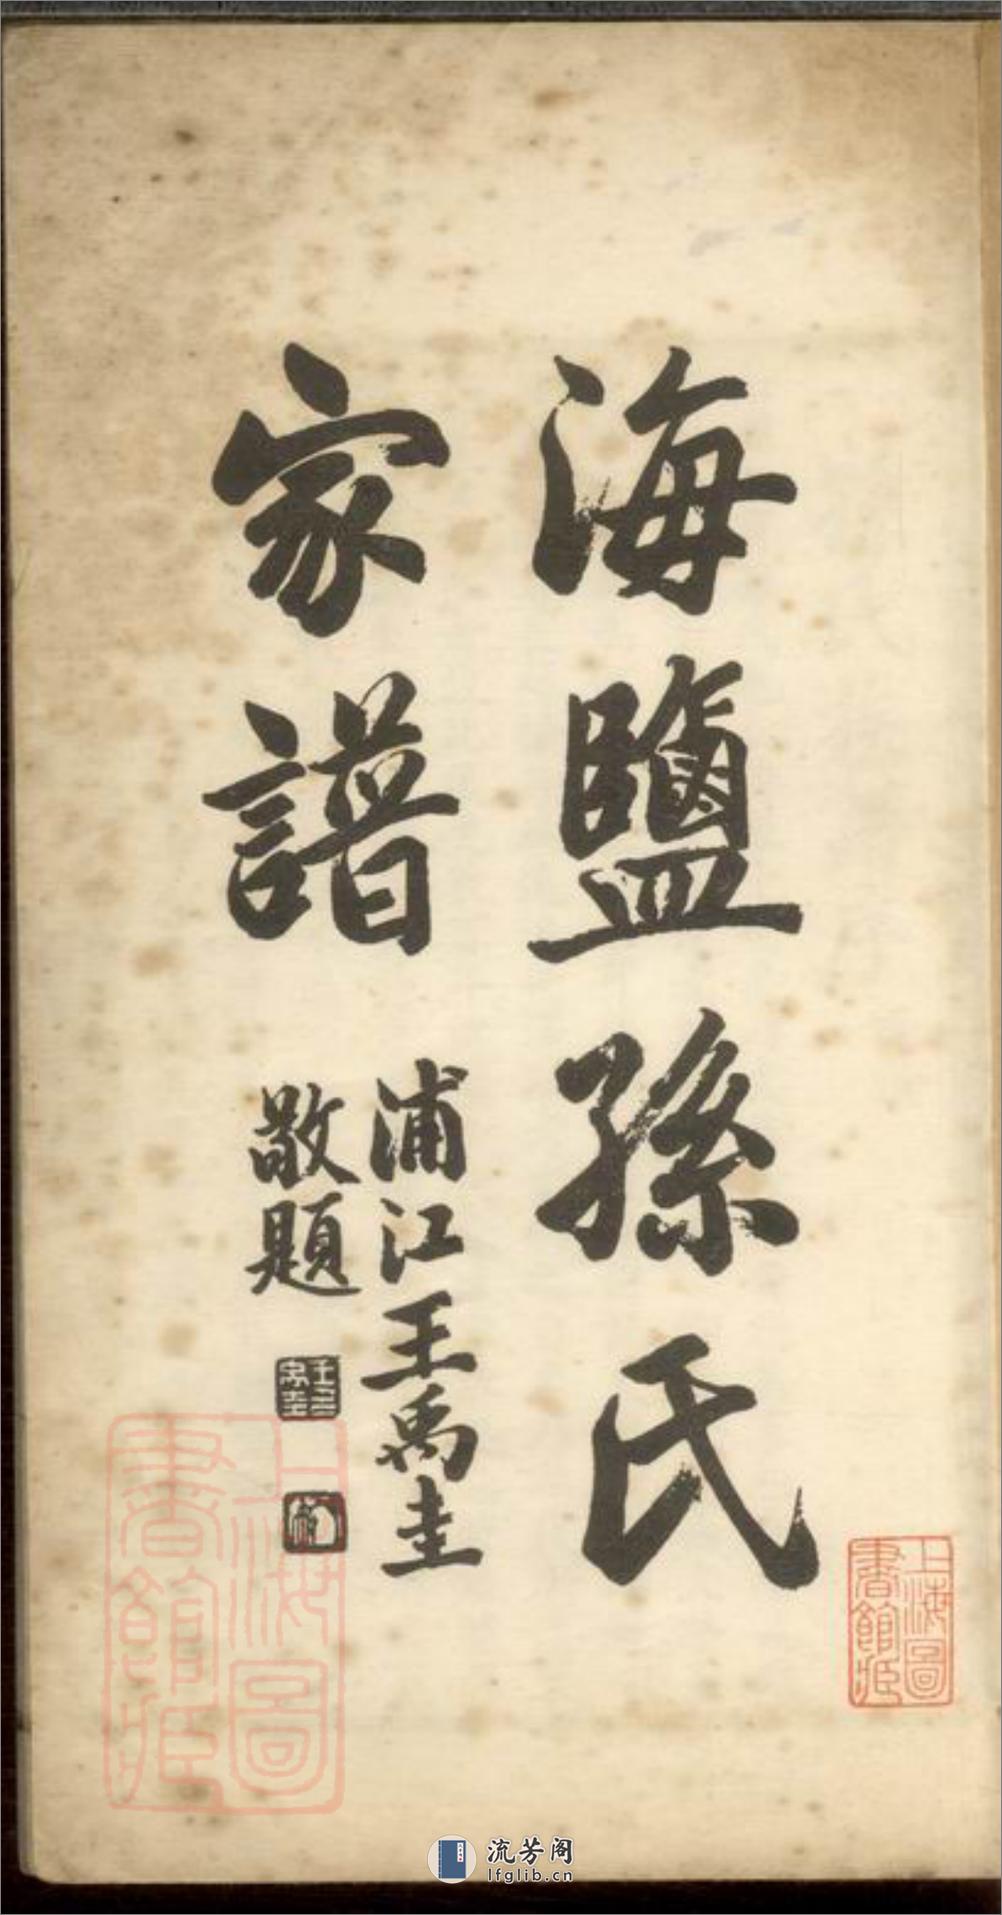 海鹽孫氏
家譜
浦江王禹圭
敬題
上海圖
書館藏
上海圖
書館藏
流芳阁
lfglib.cn